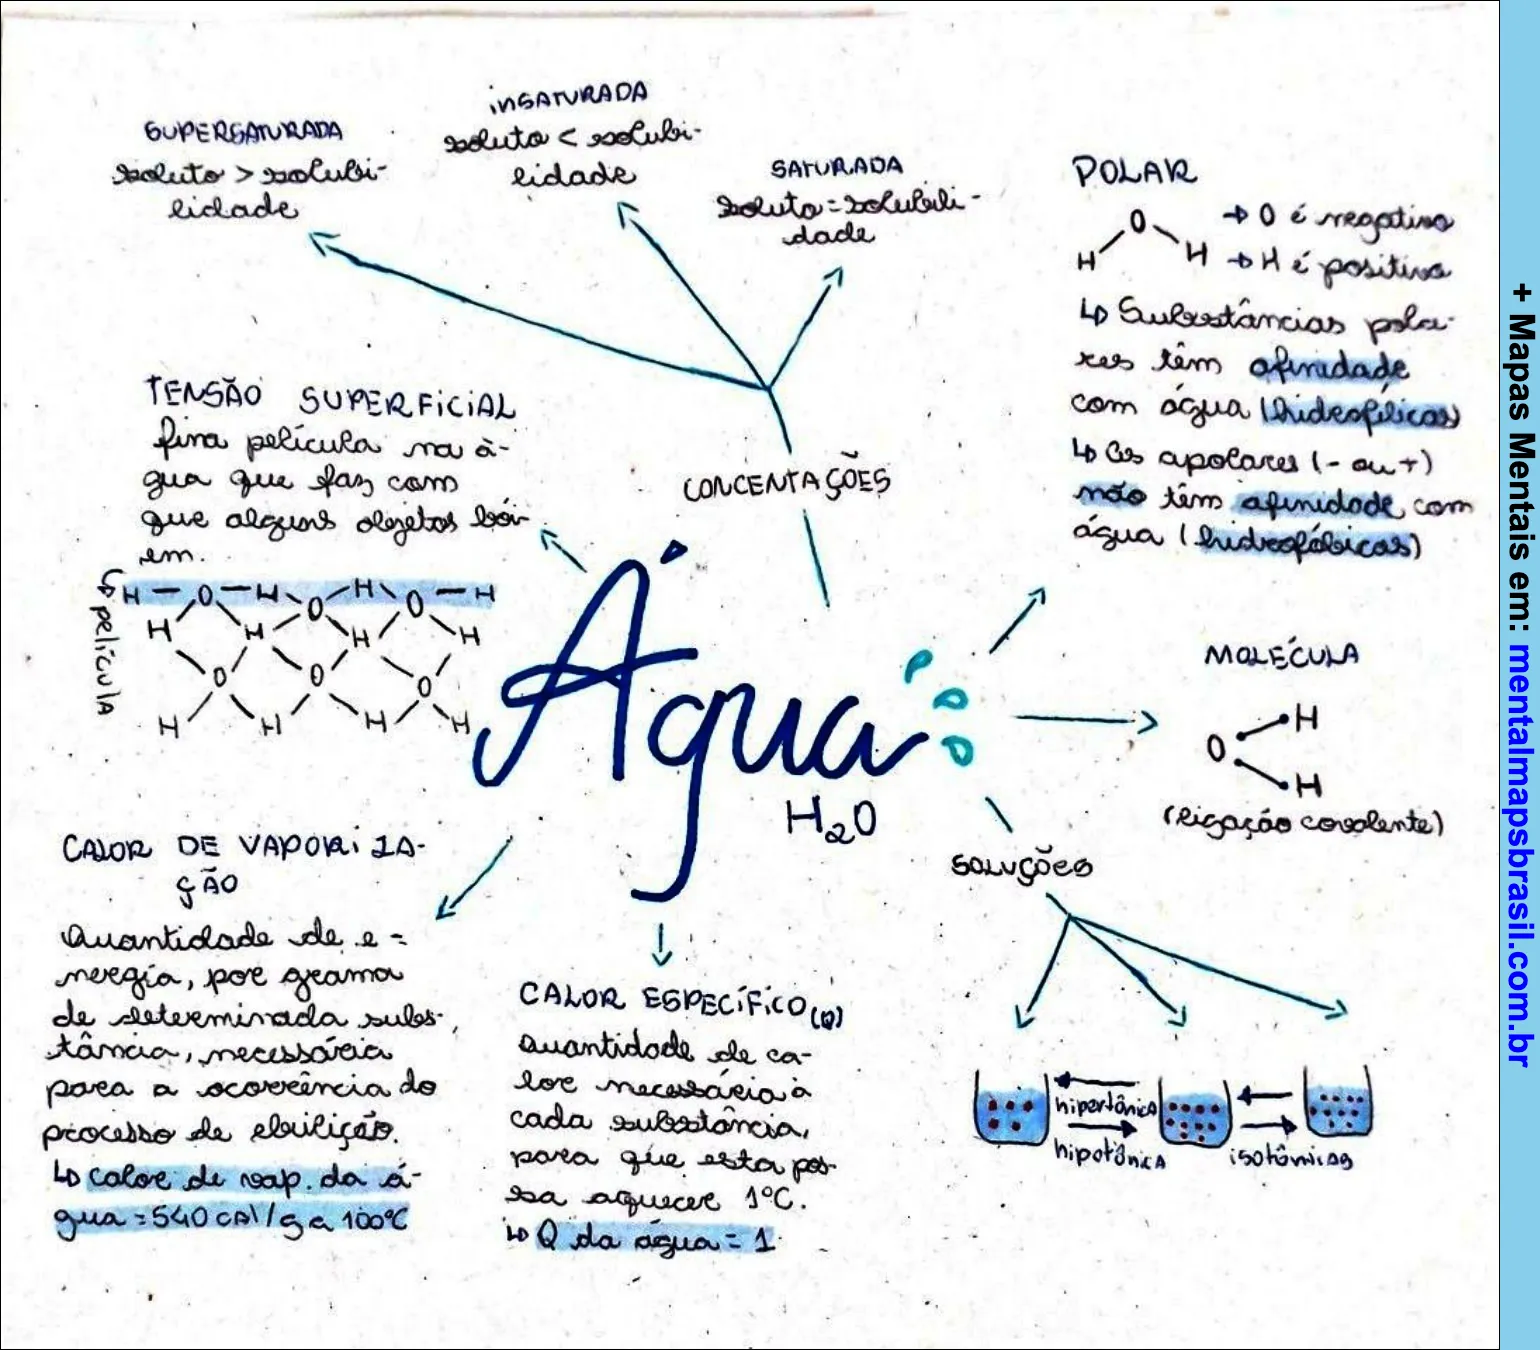 SUPERSATURADA
soluto > solubi-
lidade
INSATURADA
soluto < solubi-
lidade
SATURADA
soluto = solubili-
dade
CONCENTAÇÕES
POLAR
O
H H
→ O é negativo
→ H é positivo
↳ Substâncias pola-
res têm afinidade
com água (hidrofílicas)
↳ As apolares (- ou +)
não têm afinidade com
água (hidrofóbicas)
TENSÃO SUPERFICIAL
fina película na á-
gua que faz com
que alguns objetos bói-
em.
película
H — O — H O H O — H
H H H H
O O O
H H H H
Água
H₂O
MOLÉCULA
H
O
H
(ligação covalente)
SOLUÇÕES
hipertônica
hipotônica
isotônicas
CALOR DE VAPORIZA-
ÇÃO
Quantidade de e-
nergia, por grama
de determinada subs-
tância, necessária
para a ocorrência do
processo de ebulição.
↳ calor de vap. da á-
gua = 540 cal/g a 100°C
CALOR ESPECÍFICO (Q)
Quantidade de ca-
lor necessária à
cada substância,
para que esta pos-
sa aquecer 1°C.
↳ Q da água = 1
+ Mapas Mentais em: mentalmapsbrasil.com.br